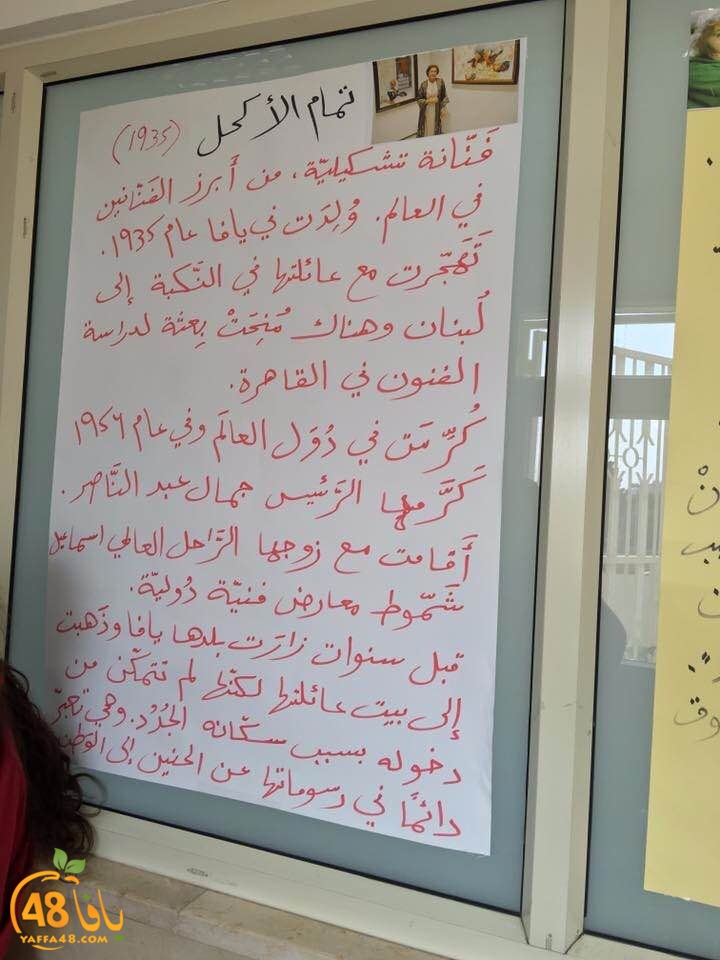 تمام الأكحل (1935)
فَنّانة تشكيليّة، من أَبرز الفَنّانين
في العالم. وُلِدَت في يافا عام 1935.
تَهَجّرت مع عائلتها في النَّكبة إلى
لُبنان وهناك مُنِحَتْ بِعثة لدراسة
الفنون في القاهرة.
كُرِّمَت في دُوَل العالَم وفي عام ١٩٥٦
كَرَّمها الرَّئيس جمال عبد النَّاصر.
أَقامت مع زوجها الرَّاحل العالمي اسماعيل
شَمّوط معارض فنيّة دُوليّة.
قبل سنوات زارَت بلدها يافا وذَهبت
إلى بيت عائلتها لكنّها لم تتمكّن من
دخوله بسبب سكّانه الجُدُد. وهي تعبّر
دائمًا في رسوماتها عن الحنين إلى الوطن
48 يافا
YAFFA48.COM